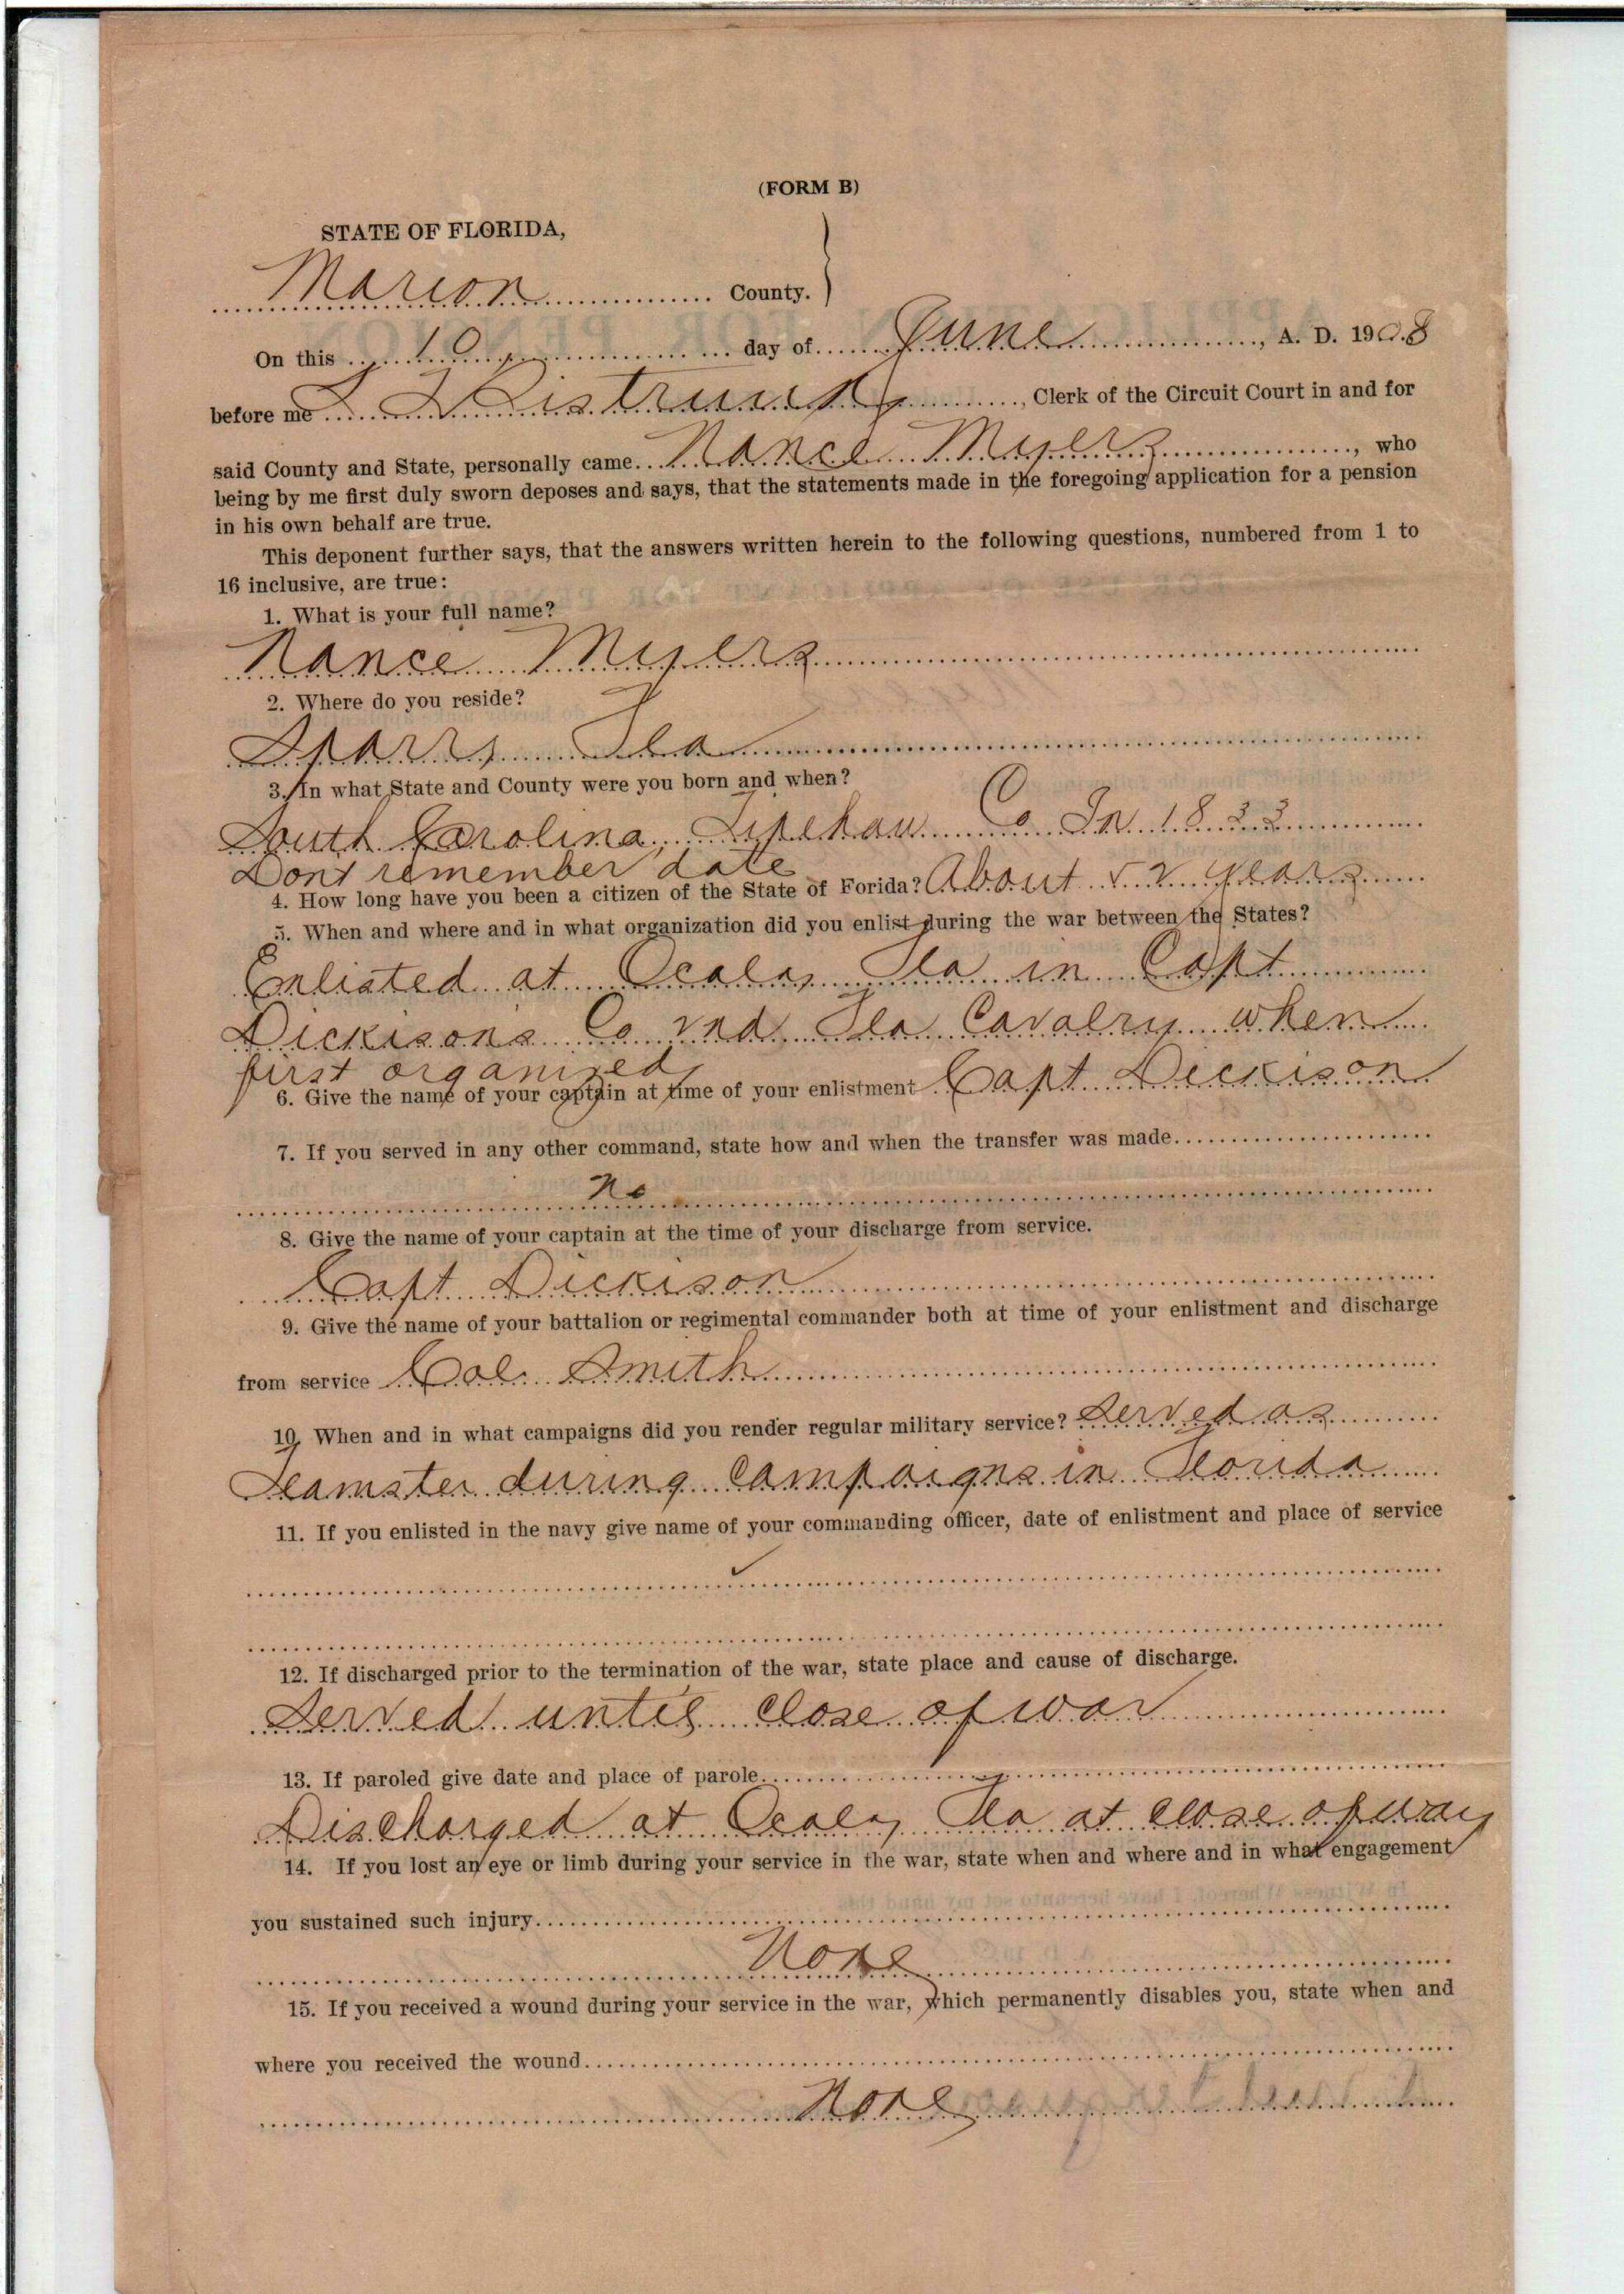 (FORM B)
STATE OF FLORIDA,
Marion County.
On this 10 day of June, A. D. 1908
before me Sistrunk, Clerk of the Circuit Court in and for
said County and State, personally came Nance Myers, who
being by me first duly sworn deposes and says, that the statements made in the foregoing application for a pension
in his own behalf are true.
This deponent further says, that the answers written herein to the following questions, numbered from 1 to
16 inclusive, are true:
1. What is your full name?
Nance Myers
2. Where do you reside?
Sparr, Fla
3. In what State and County were you born and when?
South Carolina, Co In 1833
Dont remember date
4. How long have you been a citizen of the State of Forida? About 52 years
5. When and where and in what organization did you enlist during the war between the States?
Enlisted at Ocala, Fla in Capt
Dickison's Co 2nd Fla Cavalry when
first organized
6. Give the name of your captain at time of your enlistment Capt Dickison
7. If you served in any other command, state how and when the transfer was made
No
8. Give the name of your captain at the time of your discharge from service.
Capt Dickison
9. Give the name of your battalion or regimental commander both at time of your enlistment and discharge
from service Col. Smith
10. When and in what campaigns did you render regular military service? Served as
Teamster during campaigns in Florida
11. If you enlisted in the navy give name of your commanding officer, date of enlistment and place of service
12. If discharged prior to the termination of the war, state place and cause of discharge.
Served until close of war
13. If paroled give date and place of parole
Discharged at Ocala, Fla at close of war
14. If you lost an eye or limb during your service in the war, state when and where and in what engagement
you sustained such injury
None
15. If you received a wound during your service in the war, which permanently disables you, state when and
where you received the wound
None